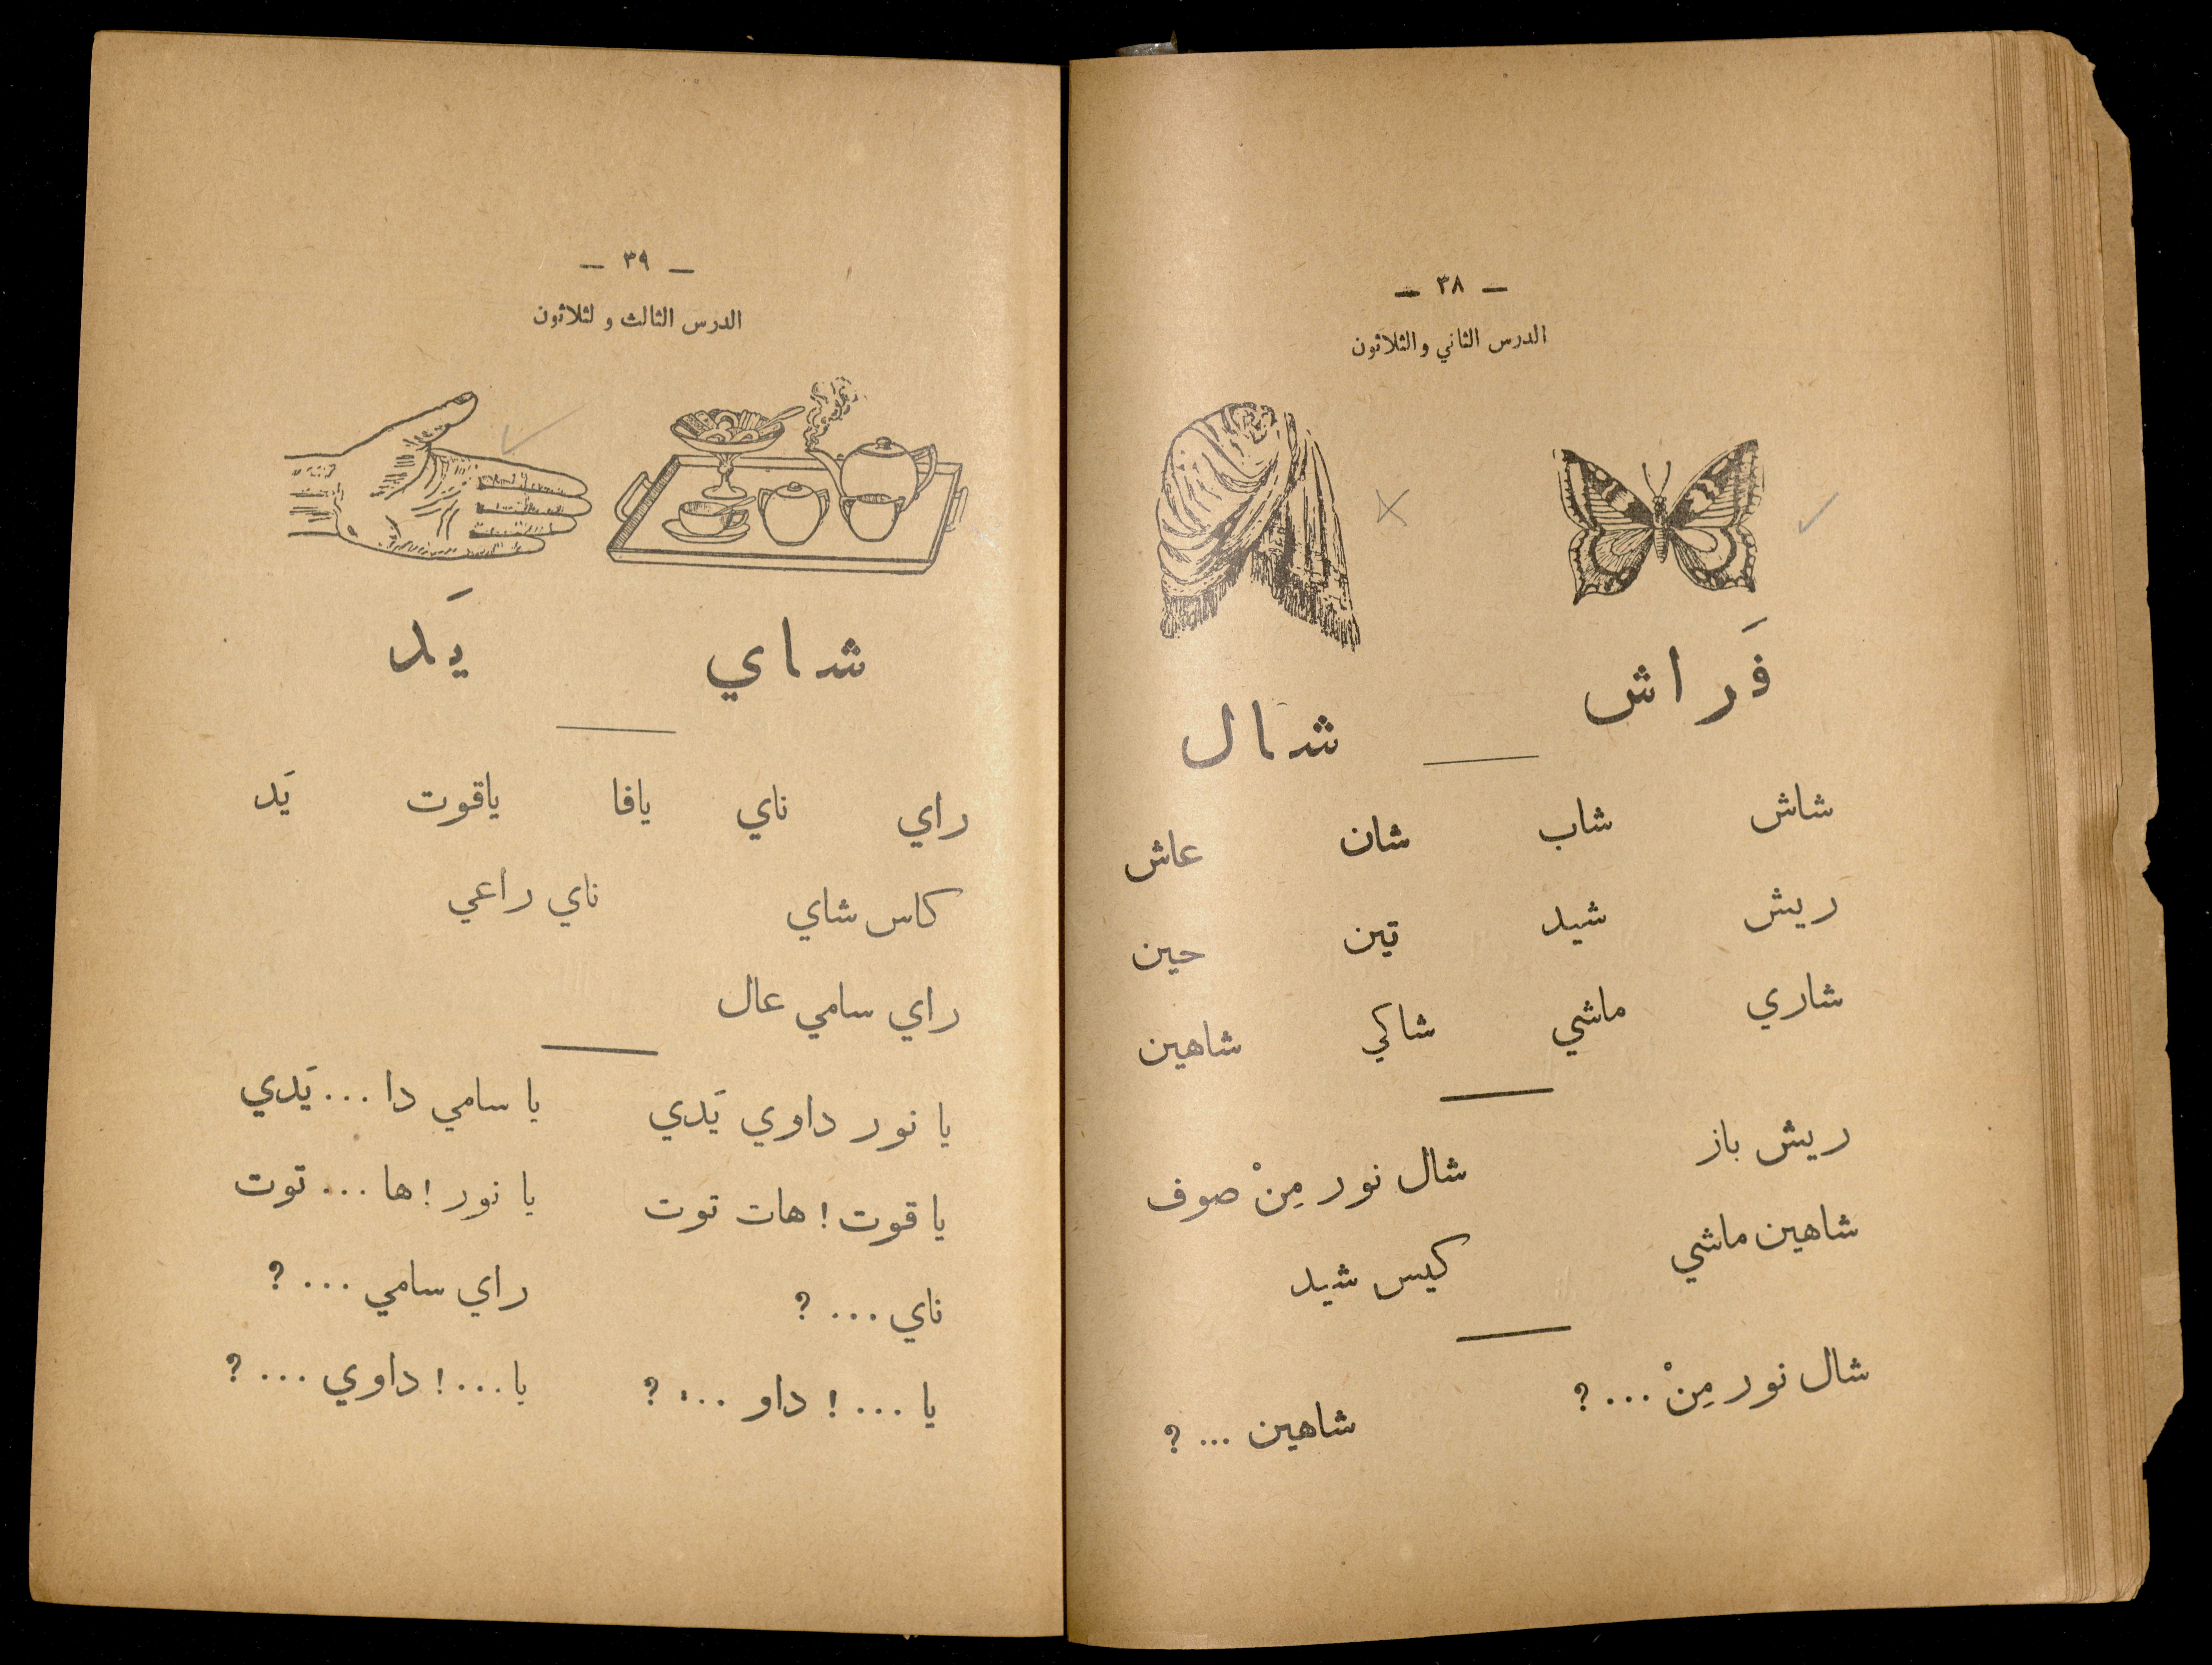 — ٣٨ —
الدرس الثاني والثلاثون
فَراش شال
شاش شاب شان عاش
ريش شيد تين حين
شاري ماشي شاكي شاهين
ريش باز شال نور مِنْ صوف
شاهين ماشي كيس شيد
شال نور مِنْ ... ؟ شاهين ... ؟
— ٣٩ —
الدرس الثالث و لثلاثون
شاي يَد
راي ناي يافا ياقوت يَد
كاس شاي ناي راعي
راي سامي عال
يا نور داوي يَدي يا سامي دا ... يَدي
يا قوت ! هات توت يا نور ! ها ... توت
ناي ... ؟ راي سامي ... ؟
يا ... ! داو ... ؟ يا ... ! داوي ... ؟